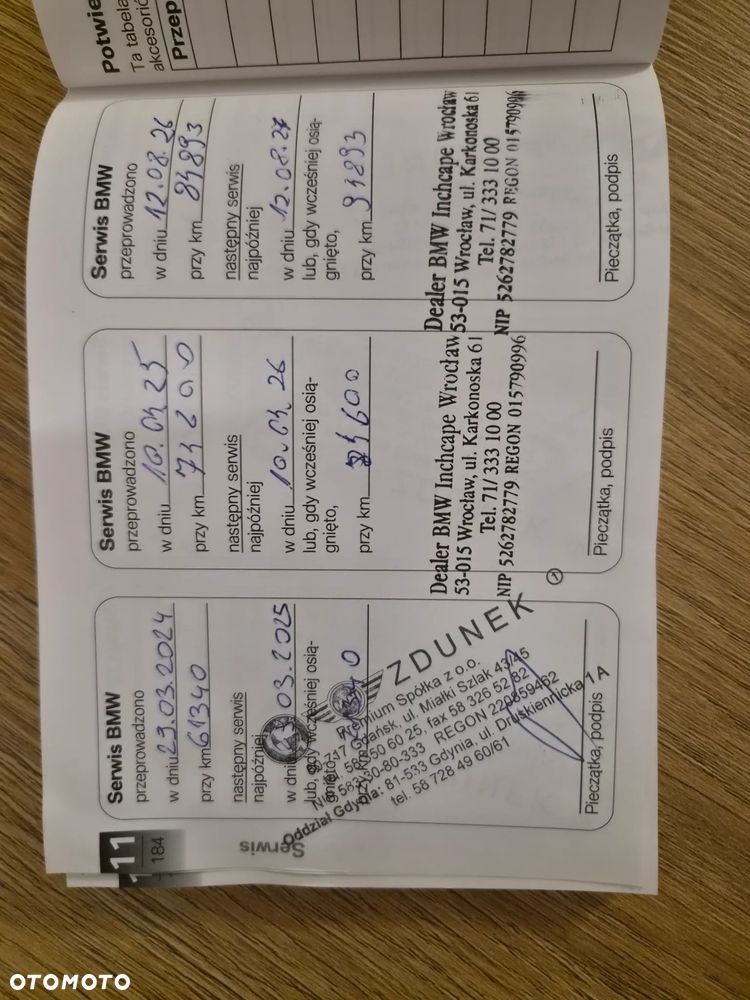 Potwie
Ta tabela
akcesorió
Przep
Serwis BMW
przeprowadzono
w dniu 23.03.2024
przy km 61340
następny serwis
najpóźniej
w dniu 03.2025
lub, gdy wcześniej osią-
gnięto,
przy km
ZDUNEK
Premium Spółka z o.o.
Gdańsk, ul. Miałki Szlak 43/45
fax 58 326 52 82
REGON 220859462
Oddział Gdynia: 81-533 Gdynia, ul. Druskiennicka 1 A
tel. 58 728 49 60/61
Pieczątka, podpis
Serwis BMW
przeprowadzono
w dniu 10.04 25
przy km 74600
następny serwis
najpóźniej
w dniu 10.04 26
lub, gdy wcześniej osią-
gnięto,
przy km 84600
Dealer BMW Inchcape Wrocław
53-015 Wrocław, ul. Karkonoska 61
Tel. 71/ 333 10 00
NIP 5262782779 REGON 015790996
Pieczątka, podpis
Serwis BMW
przeprowadzono
w dniu 12.08.26
przy km 84893
następny serwis
najpóźniej
w dniu 12.08.27
lub, gdy wcześniej osią-
gnięto,
przy km 94893
Dealer BMW Inchcape Wrocław
53-015 Wrocław, ul. Karkonoska 61
Tel. 71/ 333 10 00
NIP 5262782779 REGON 015790996
Pieczątka, podpis
11
184
Serwis
OTOMOTO